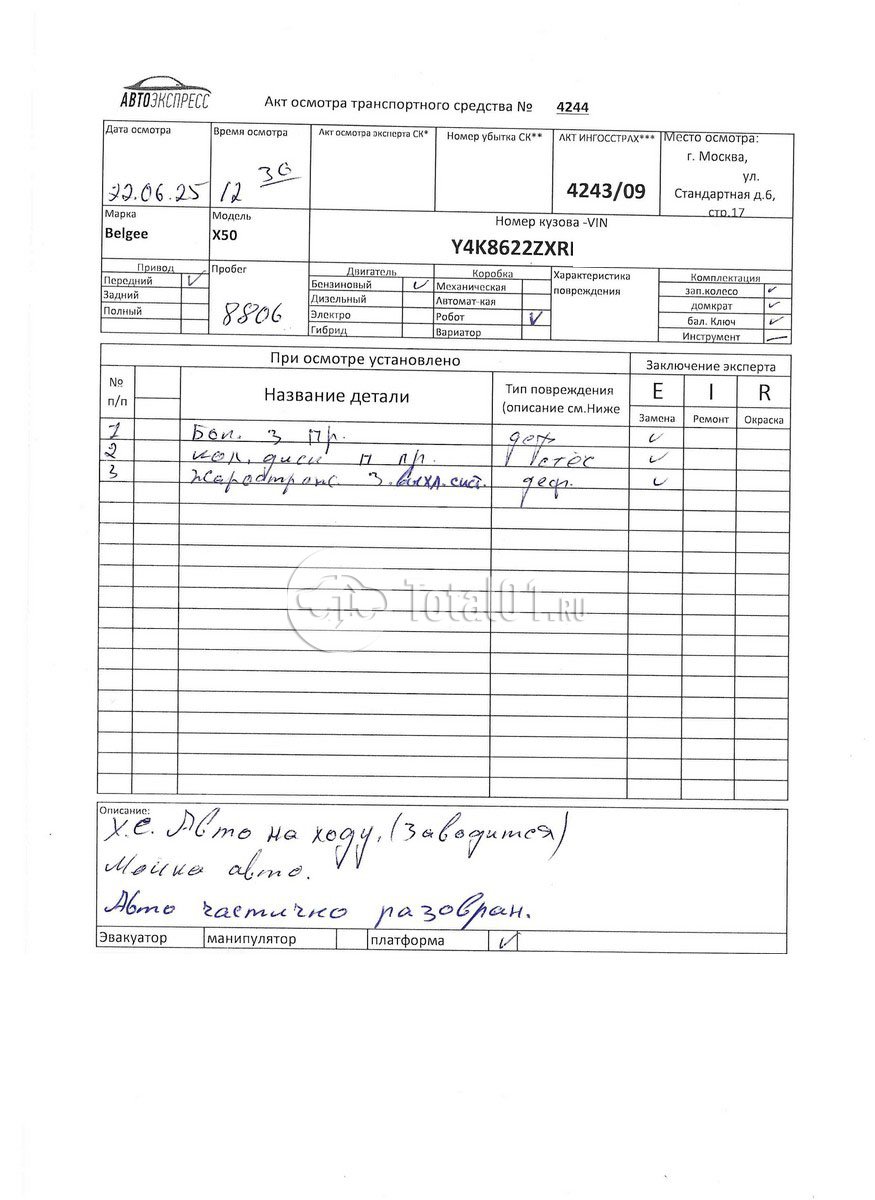 АВТОЭКСПРЕСС
Акт осмотра транспортного средства № 4244
Дата осмотра
22.06.25
Время осмотра
12 30
Акт осмотра эксперта СК*
Номер убытка СК**
АКТ ИНГОССТРАХ***
4243/09
Место осмотра:
г. Москва,
ул.
Стандартная д.6,
стр.17
Марка
Belgee
Модель
X50
Номер кузова -VIN
Y4K8622ZXRI
Привод
Передний
Задний
Полный
Пробег
8806
Двигатель
Бензиновый
Дизельный
Электро
Гибрид
Коробка
Механическая
Автомат-кая
Робот
Вариатор
Характеристика
повреждения
Комплектация
зап.колесо
домкрат
бал. Ключ
Инструмент
При осмотре установлено
Заключение эксперта
№
п/п
Название детали
Тип повреждения
(описание см.Ниже
E I R
Замена Ремонт Окраска
1 З пр. деф
2 диск П пр.
3 З.выхл.сист. деф.
Total01.RU
Описание:
Х.С. Авто на ходу, (заводится)
Мойка авто.
Авто частично разобран.
Эвакуатор манипулятор платформа